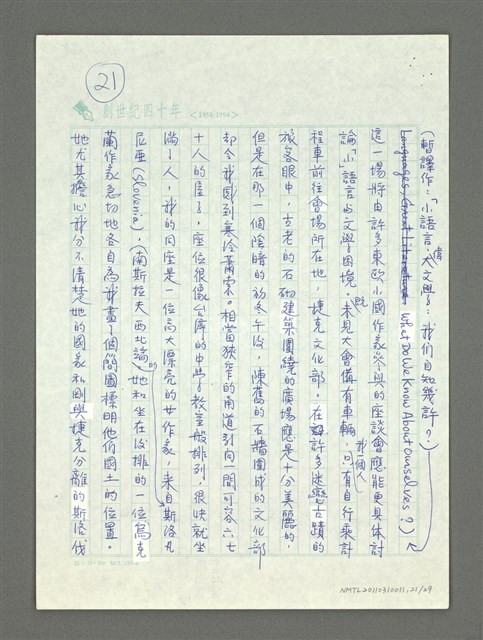 21
創世紀四十年 <1954-1994>
(暫譯作:「小語言,大文學:我們自知幾許?」
Languages, Great Literature: What Do We Know About Ourselves?)
這一場將由許多東歐小國作家參與的座談會應能更具體討
論「小」語言的文學困境。既未見大會備有車輛,我一個人只有自行乘計
程車前往會場所在地,捷克文化部。在許多迷戀古蹟的
旅客眼中,古老的石砌建築圍繞的廣場應是十分美麗的,
但是在那一個陰暗的初冬午後,陳舊的石牆圍成的文化部
却令我感到寒冷蕭索。相當狹窄的甬道引向一間可容六七
十人的屋子,座位很像台灣的中學教室般排列,很快就坐
滿了人,我的同座是一位高大漂亮的女作家,來自斯洛凡
尼亞(Slovenia),(南斯拉夫西北端)的她和坐在後排的一位烏克
蘭作家急切地各自為我畫了個簡圖標明他們國土的位置。
她尤其擔心我分不清楚她的國家和剛與捷克分離的斯洛伐
NMTL20110310011, 21/29